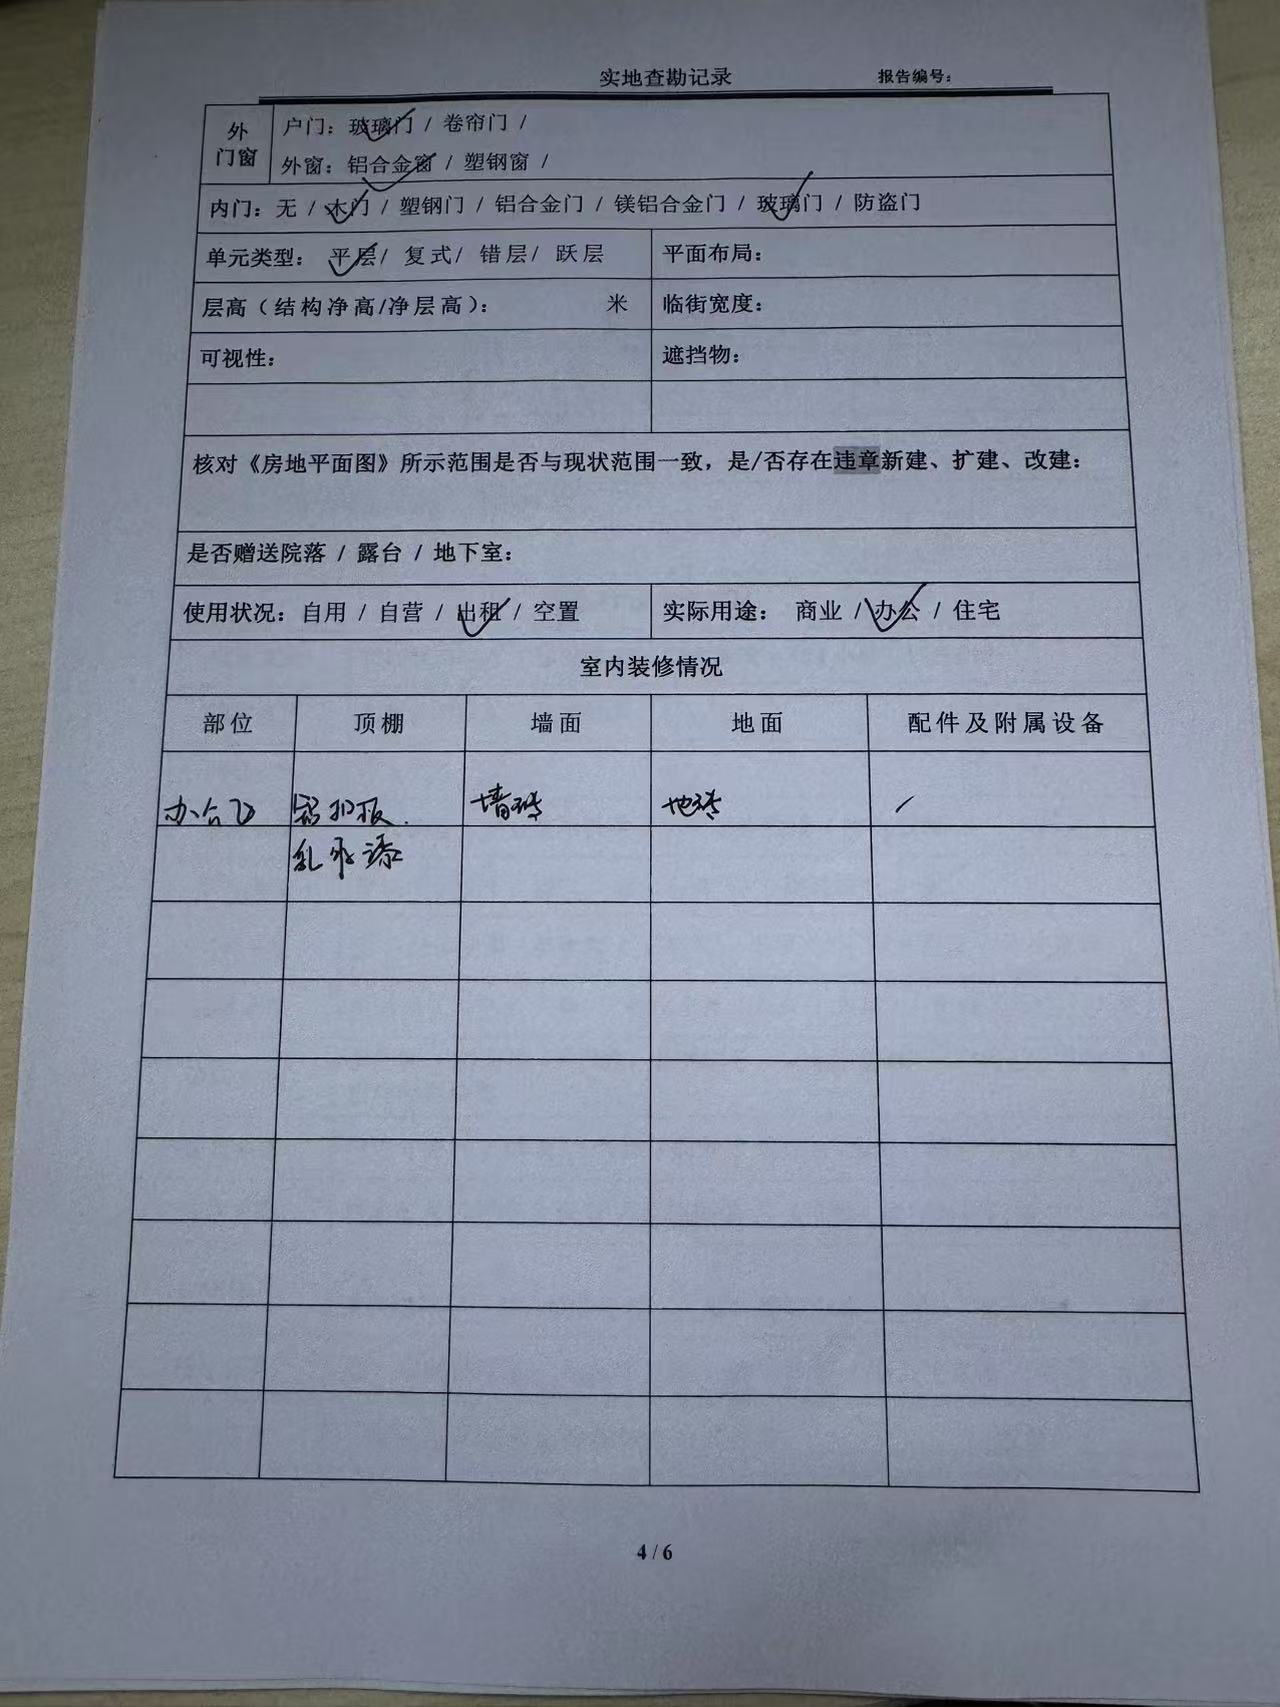 实地查勘记录 报告编号：
外门窗 户门：玻璃门 / 卷帘门 /
外窗：铝合金窗 / 塑钢窗 /
内门：无 / 木门 / 塑钢门 / 铝合金门 / 镁铝合金门 / 玻璃门 / 防盗门
单元类型： 平层/ 复式/ 错层/ 跃层 平面布局：
层高（结构净高/净层高）： 米 临街宽度：
可视性： 遮挡物：
核对《房地平面图》所示范围是否与现状范围一致，是/否存在违章新建、扩建、改建：
是否赠送院落 / 露台 / 地下室：
使用状况：自用 / 自营 / 出租 / 空置 实际用途： 商业 / 办公 / 住宅
室内装修情况
部位 顶棚 墙面 地面 配件及附属设备
办公 铝扣板 墙砖 地砖 /
乳胶漆
4 / 6